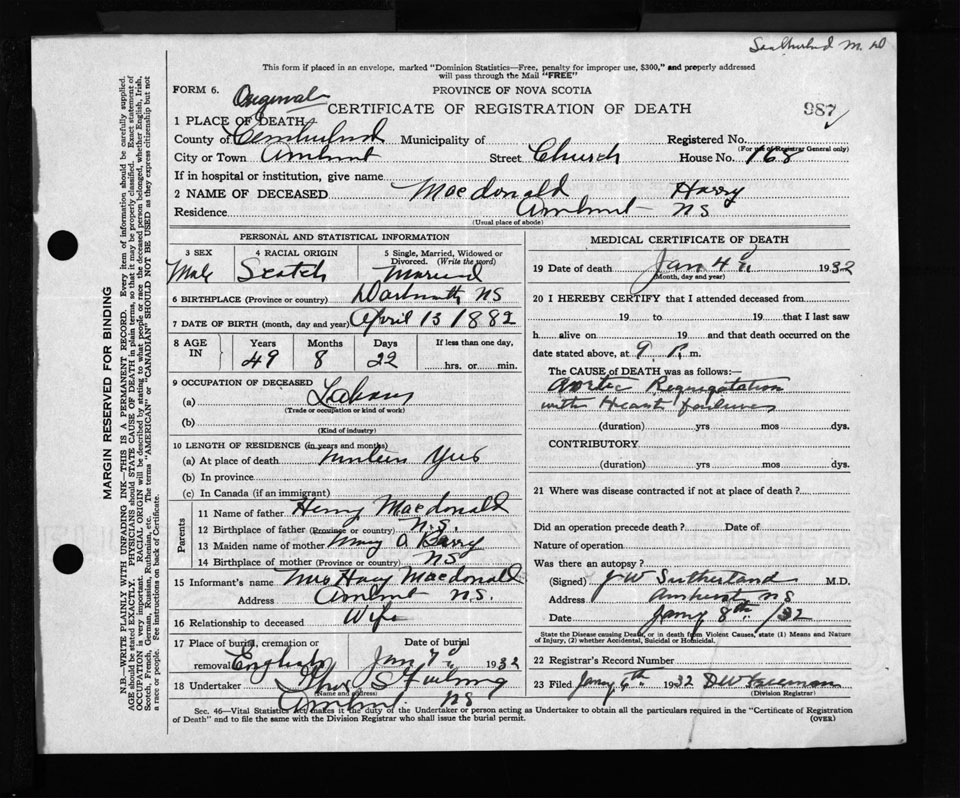 Sutherland M. D
This form if placed in an envelope, marked "Dominion Statistics—Free, penalty for improper use, $300," and properly addressed
will pass through the Mail "FREE"
FORM 6.
PROVINCE OF NOVA SCOTIA
Original
CERTIFICATE OF REGISTRATION OF DEATH
987
1 PLACE OF DEATH
County of Cumberland Municipality of Registered No.
(For use of Registrar General only)
City or Town Amherst Street Church House No. 168
If in hospital or institution, give name
2 NAME OF DECEASED Macdonald Harry
Residence Amherst NS
(Usual place of abode)
PERSONAL AND STATISTICAL INFORMATION
3 SEX 4 RACIAL ORIGIN 5 Single, Married, Widowed or
Divorced. (Write the word)
Male Scotch Married
6 BIRTHPLACE (Province or country) Dartmouth NS
7 DATE OF BIRTH (month, day and year) April 13 1882
8 AGE IN Years Months Days If less than one day,
49 8 22 hrs. or min.
9 OCCUPATION OF DECEASED
(a) Labourer
(Trade or occupation or kind of work)
(b)
(Kind of industry)
10 LENGTH OF RESIDENCE (in years and months)
(a) At place of death Yrs
(b) In province
(c) In Canada (if an immigrant)
Parents
11 Name of father Henry Macdonald
12 Birthplace of father (Province or country) N.S.
13 Maiden name of mother Mary A Barry
14 Birthplace of mother (Province or country) NS
15 Informant's name Mrs Harry Macdonald
Address Amherst NS.
16 Relationship to deceased Wife
17 Place of burial, cremation or Date of burial
removal English Jany 7th 1932
18 Undertaker S Furlong
(Name and address)
Amherst NS
MEDICAL CERTIFICATE OF DEATH
19 Date of death Jan 4th 1932
(Month, day and year)
20 I HEREBY CERTIFY that I attended deceased from
19 to 19 that I last saw
h alive on 19 and that death occurred on the
date stated above, at 9 P. m.
The CAUSE OF DEATH was as follows:—
Aortic Regurgitation
with Heart failure
(duration) yrs mos dys.
CONTRIBUTORY
(duration) yrs mos dys.
21 Where was disease contracted if not at place of death?
Did an operation precede death? Date of
Nature of operation
Was there an autopsy?
(Signed) J W Sutherland M.D.
Address Amherst NS
Date Jany 8th /32
State the Disease causing Death, or in death from Violent Causes, state (1) Means and Nature
of Injury, (2) whether Accidental, Suicidal or Homicidal.
22 Registrar's Record Number
23 Filed Jany 1932 D W Freeman
(Division Registrar)
Sec. 46—Vital Statistics Act makes it the duty of the Undertaker or person acting as Undertaker to obtain all the particulars required in the "Certificate of Registration
of Death" and to file the same with the Division Registrar who shall issue the burial permit.
(OVER)
MARGIN RESERVED FOR BINDING
N.B.—WRITE PLAINLY WITH UNFADING INK—THIS IS A PERMANENT RECORD. Every item of information should be carefully supplied.
AGE should be stated EXACTLY. PHYSICIANS should STATE CAUSE OF DEATH in plain terms, so that it may be properly classified. Exact statement of
OCCUPATION is very important. RACIAL ORIGIN will be described by stating to what people or race the deceased person belonged, whether English, Irish,
Scotch, French, German, Russian, Ruthenian, etc. The terms "AMERICAN" or "CANADIAN" SHOULD NOT BE USED as they express citizenship but not
a race or people. See instructions on back of Certificate.